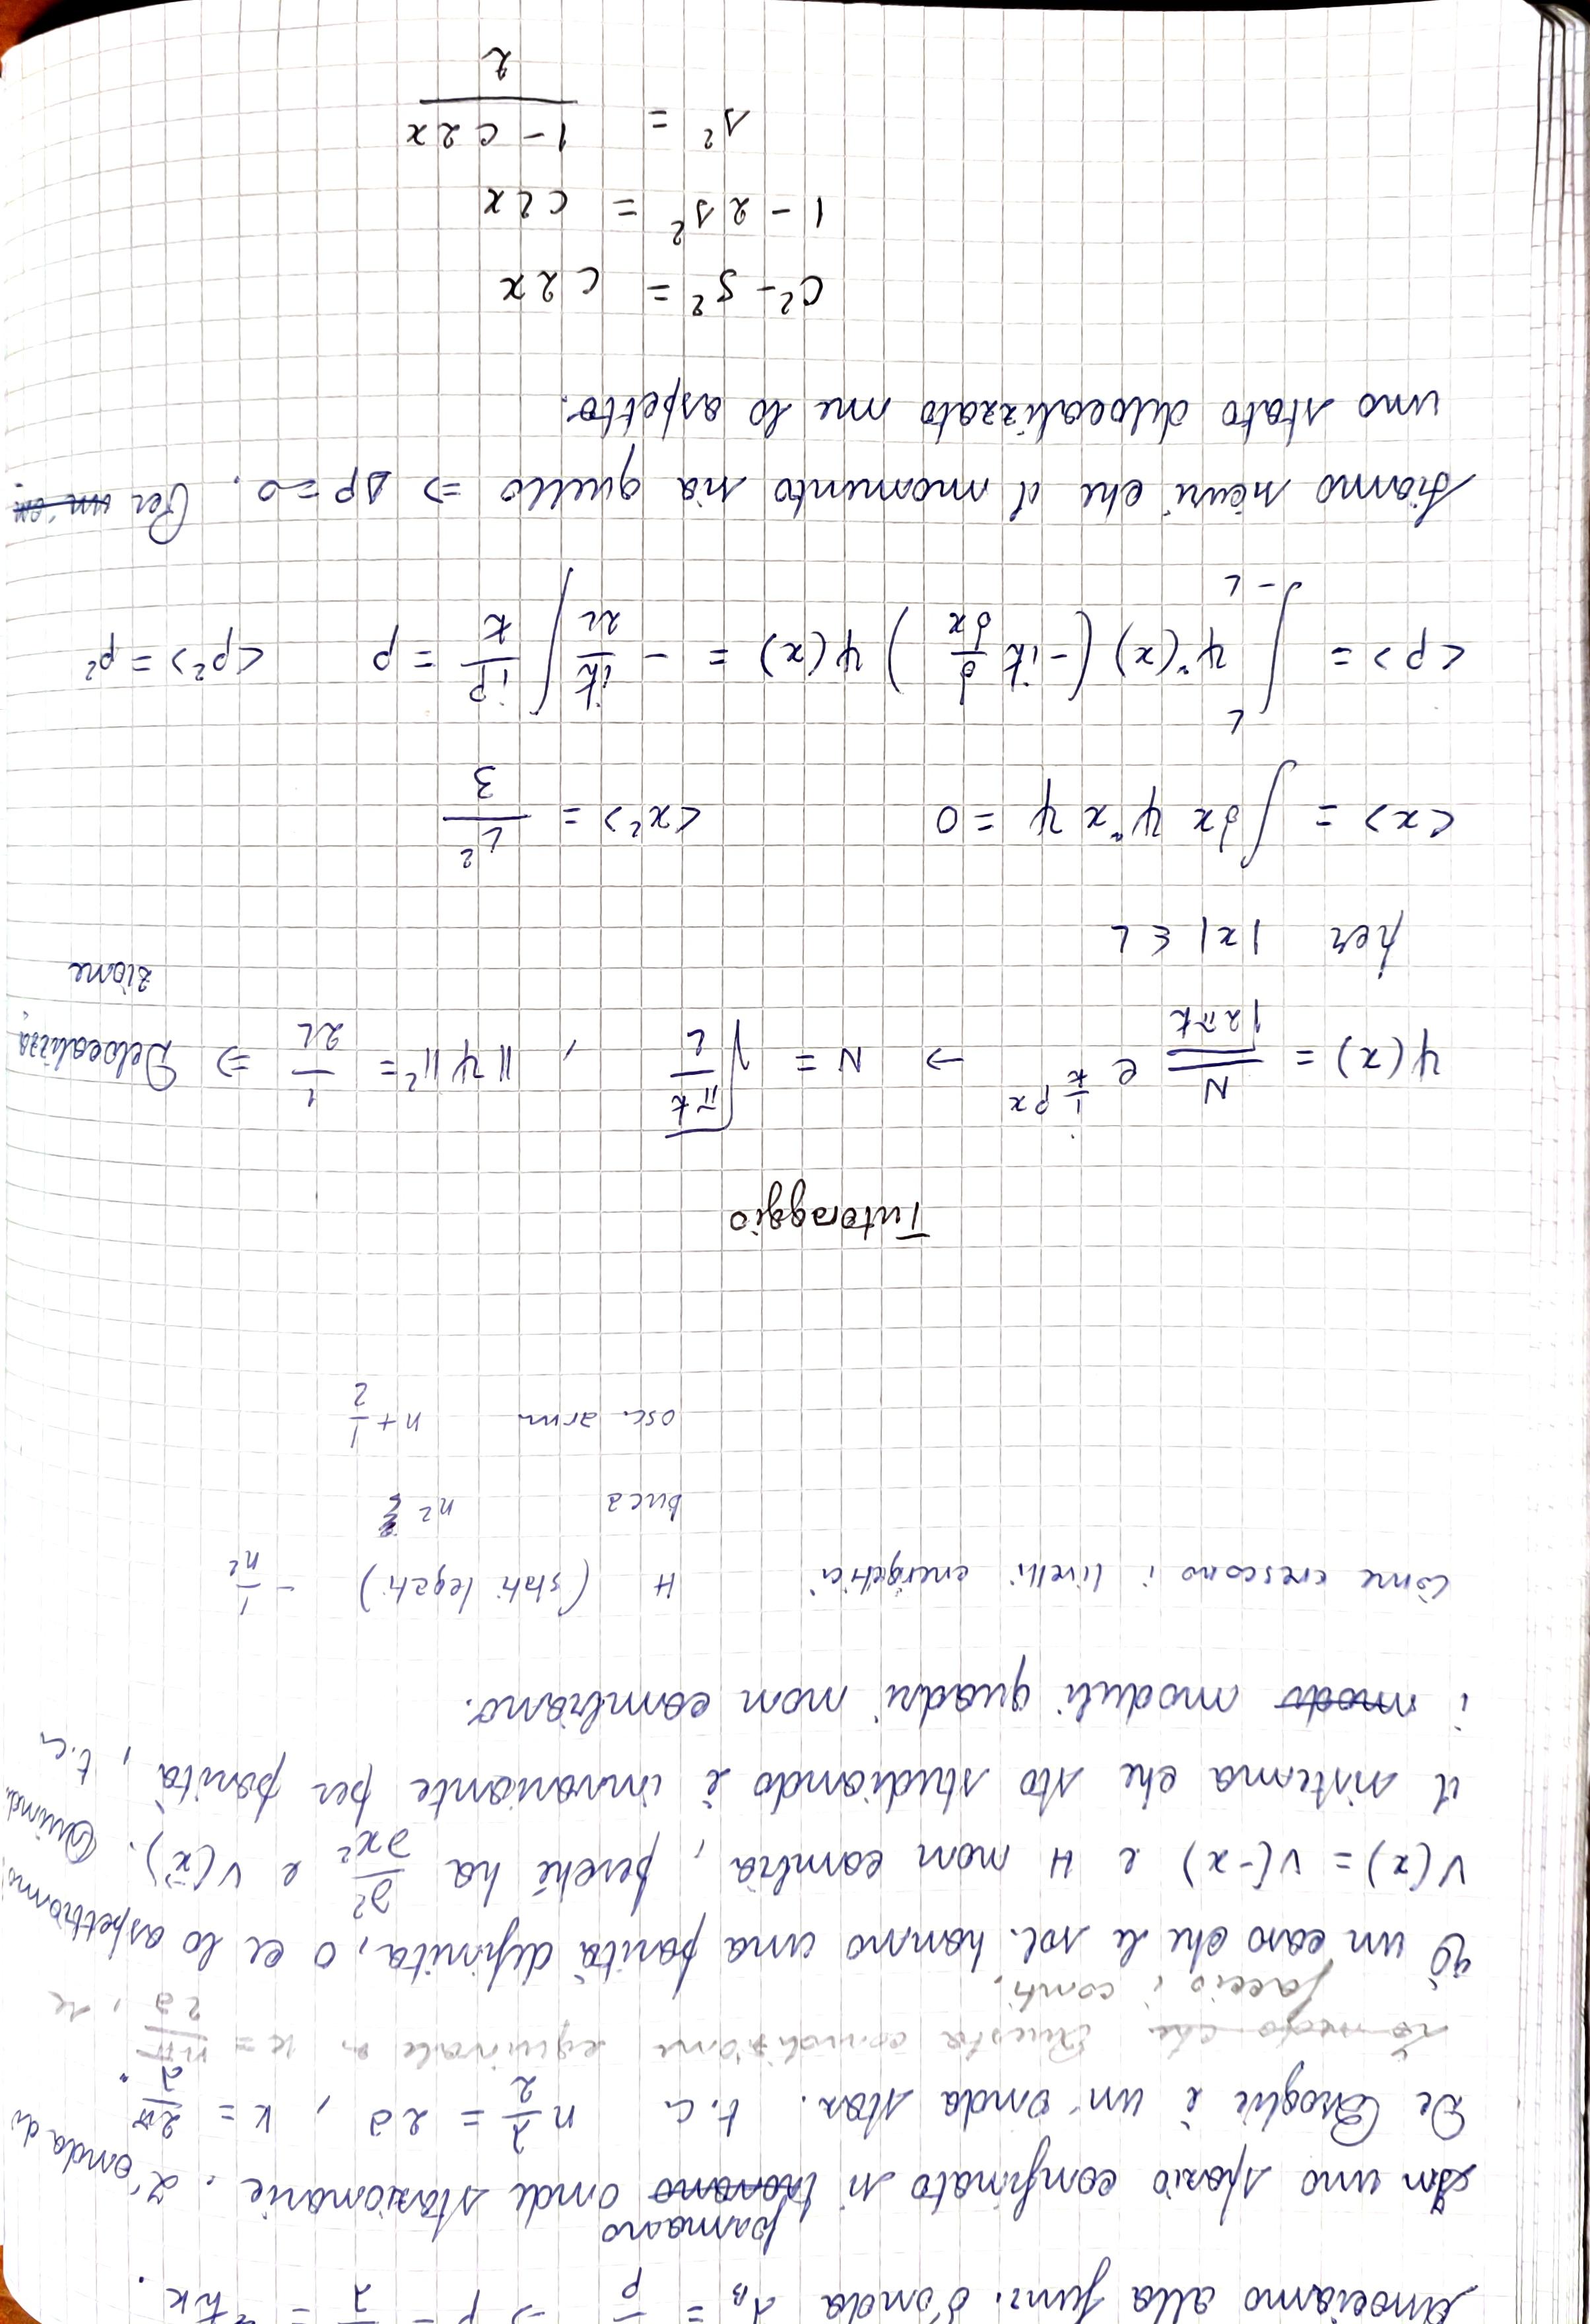 Associamo alla funz. d'onda λ_B = —/p → p = —/λ = ħk.
In uno spazio confinato si trovano formano onde stazionarie. L'onda di
De Broglie è un'onda staz. t.c. n λ/2 = 2a, k = 2π/λ.
Questa condizione equivale a k = nπ/2a, se
faccio i conti.
È un caso che le sol. hanno una parità definita, o ce lo aspettiamo?
V(x) = V(-x) e H non cambia, perché ha ∂²/∂x² e V(x). Quindi
il sistema che sto studiando è invariante per parità, t.c.
i modo moduli quadri non cambiano.
Come crescono i livelli energetici H (stati legati) - 1/n²
buca n²
osc. arm. n + 1/2
Tutoraggio
ψ(x) = N/√2πħ e^{i/ħ px} → N = √(πħ/L), ||ψ||² = 1/2L ⇒ Delocalizza
zione
per |x| ≤ L
<x> = ∫dx ψ* x ψ = 0 <x²> = L²/3
<p> = ∫_{-L}^{L} ψ*(x) (-iħ ∂/∂x) ψ(x) = - iħ/2L ∫ ip/ħ = p <p²> = p²
siamo sicuri che il momento sia quello ⇒ Δp = 0. Per un
uno stato delocalizzato me lo aspetto.
c² - s² = c2x
1 - 2s² = c2x
s² = (1 - c2x)/2